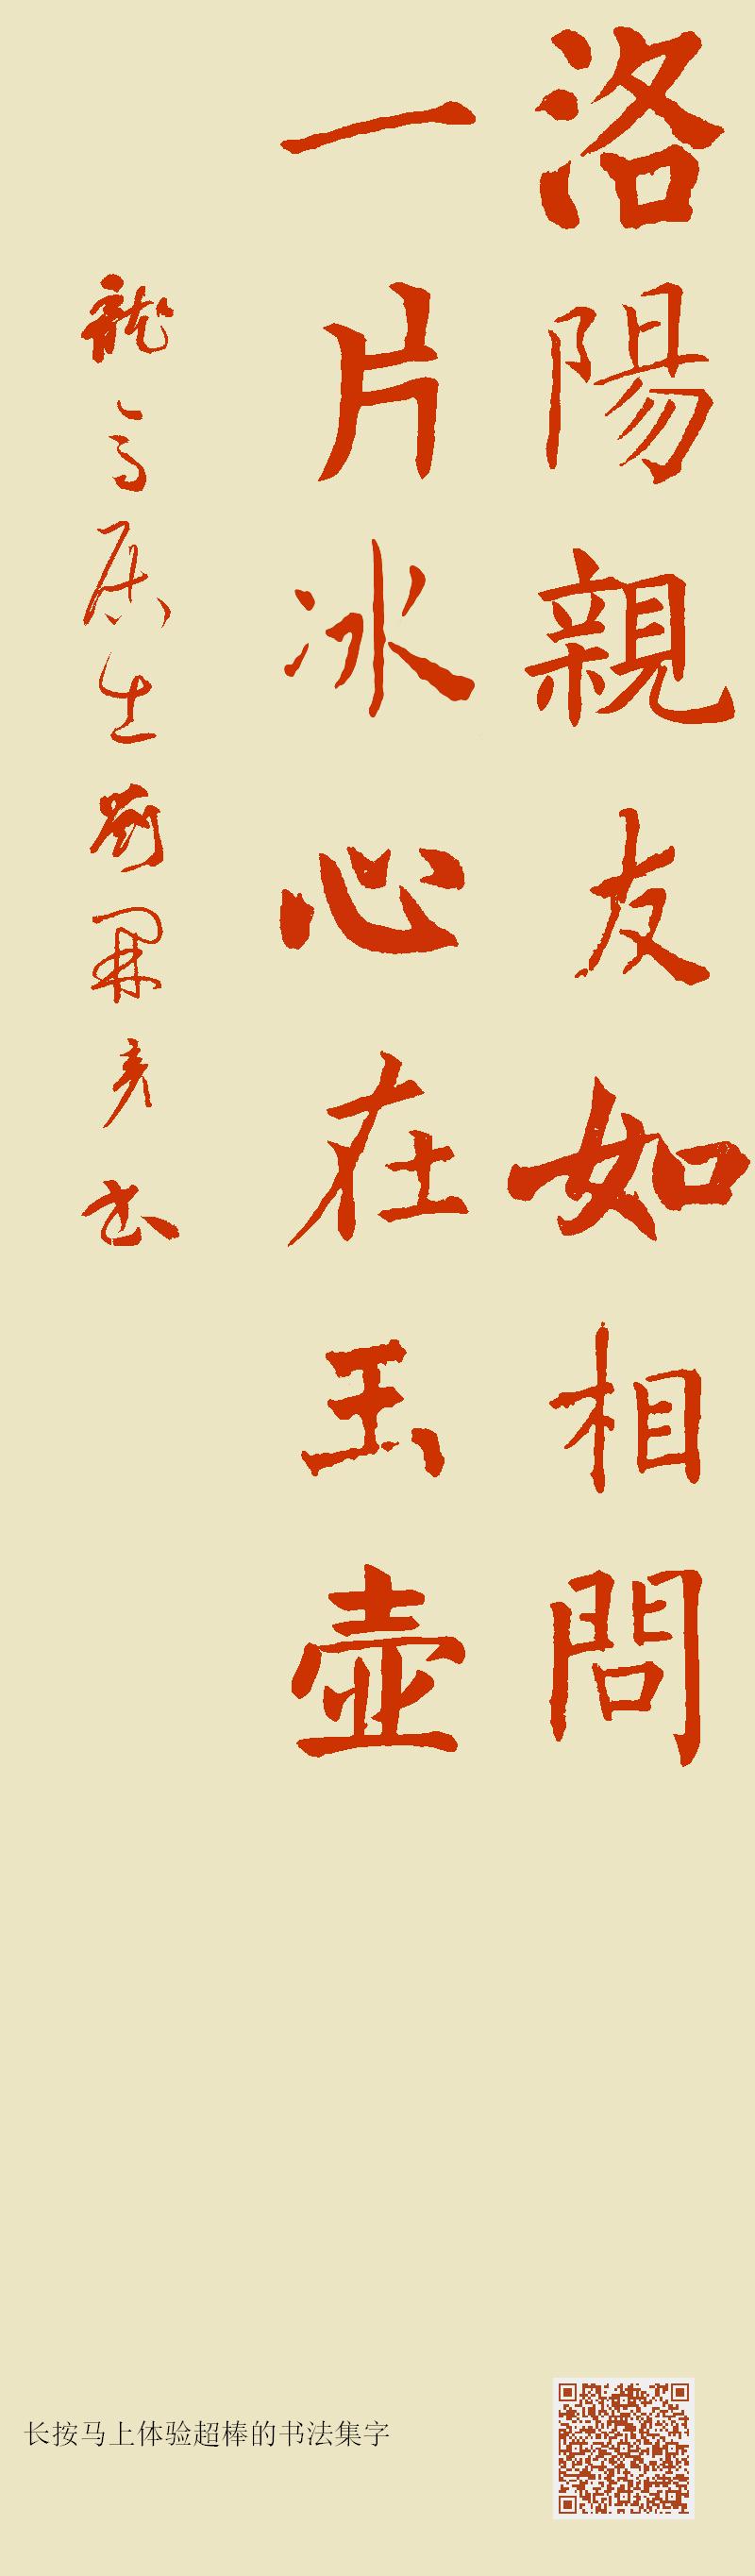 洛陽親友如相問
一片冰心在玉壺
龍生劉書
长按马上体验超棒的书法集字